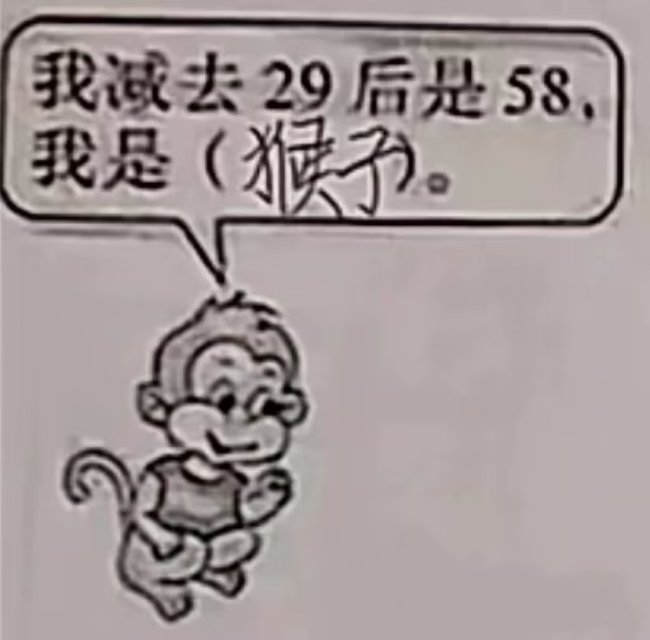 我减去29后是58,
我是(猴子)。